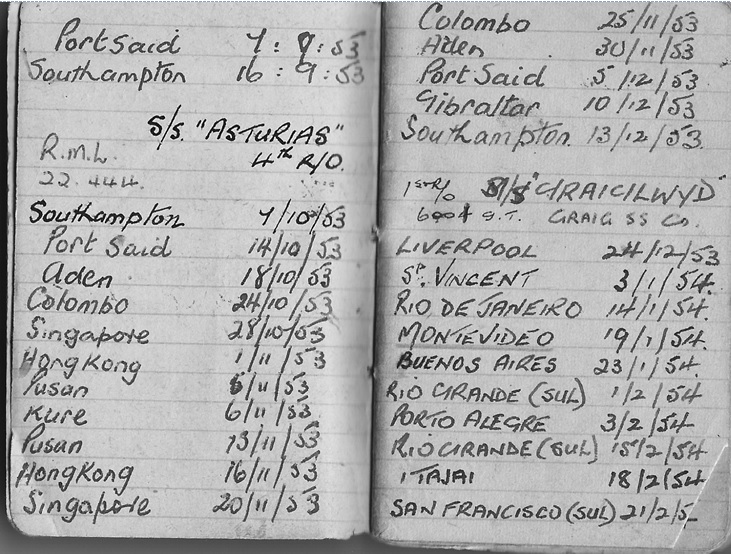 Port Said 7 : 9 : 53
Southampton 16 : 9 : 53
S/S. "ASTURIAS"
R.M.L. 4th R/O.
22.444.
Southampton 7/10/53
Port Said 14/10/53
Aden 18/10/53
Colombo 24/10/53
Singapore 28/10/53
Hong Kong 1/11/53
Pusan 5/11/53
Kure 6/11/53
Pusan 13/11/53
Hong Kong 16/11/53
Singapore 20/11/53
Colombo 25/11/53
Aden 30/11/53
Port Said 5/12/53
Gibraltar 10/12/53
Southampton. 13/12/53.
1st R/O S/S "GRAIGLWYD"
G.T. GRAIG SS Co.
LIVERPOOL 24/12/53
ST. VINCENT 3/1/54.
RIO DE JANEIRO 14/1/54.
MONTEVIDEO 19/1/54.
BUENOS AIRES 23/1/54.
RIO GRANDE (SUL) 1/2/54
PORTO ALEGRE 3/2/54
RIO GRANDE (SUL) 15/2/54
ITAJAI 18/2/54
SAN FRANCISCO (SUL) 21/2/5